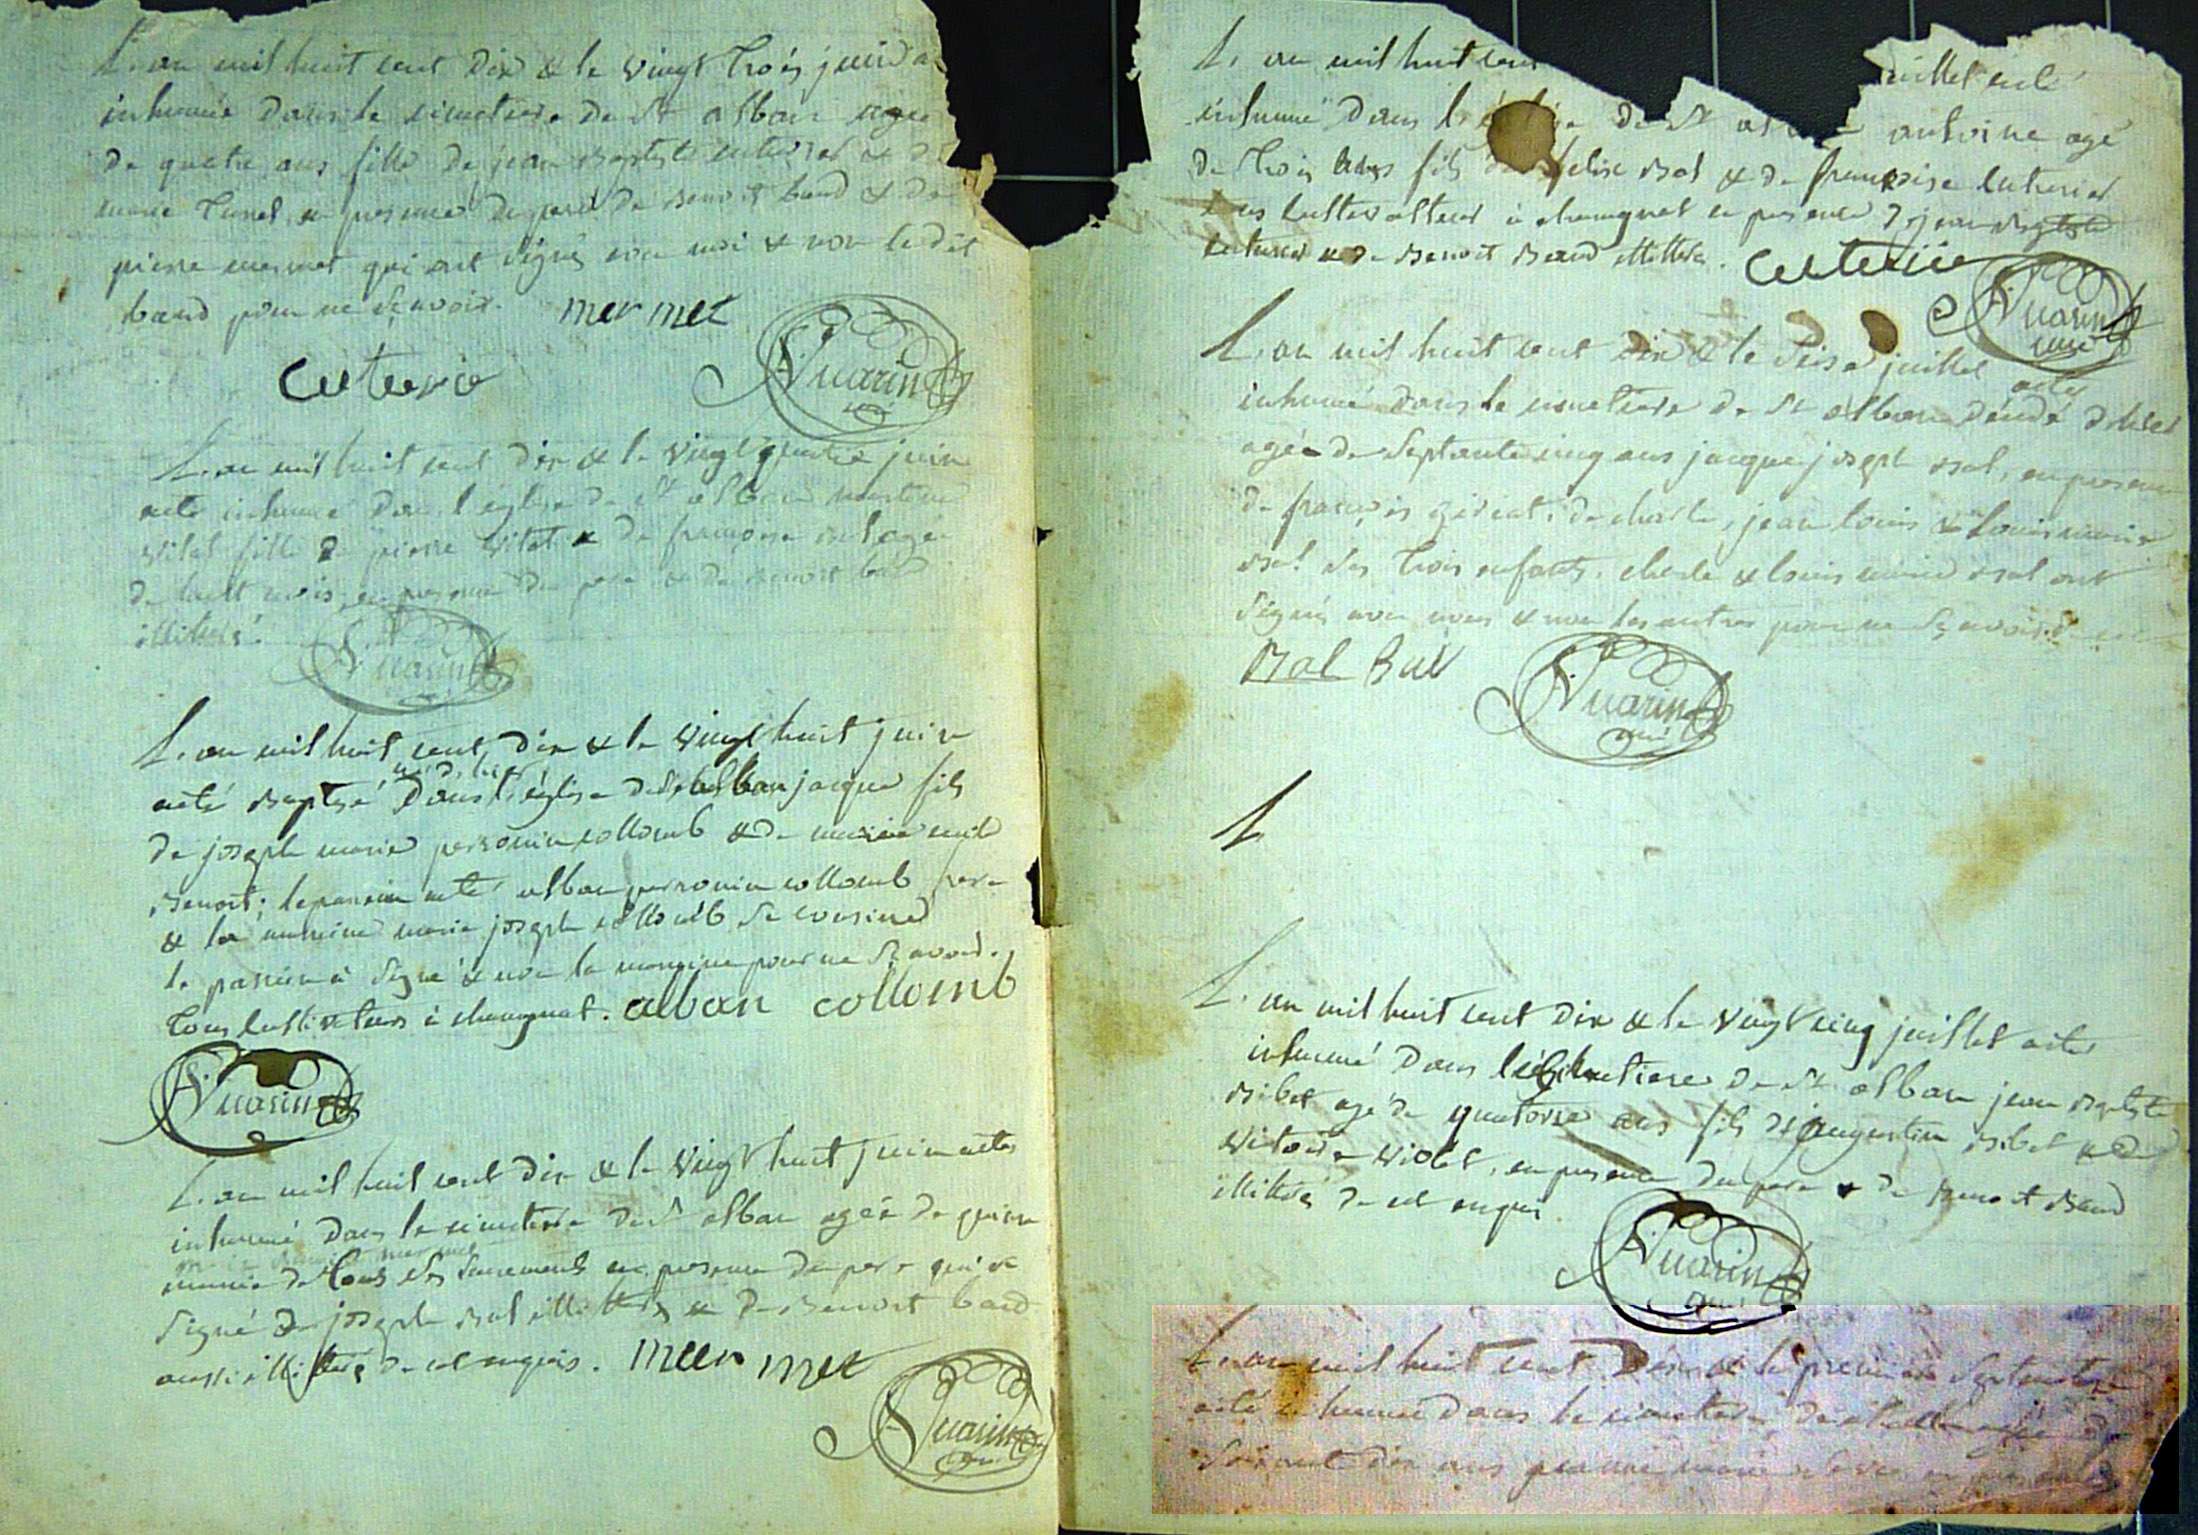 L'an mil huit cent dix & le vingt trois juin a
inhumée dans le cimetiere de St alban agée
de quatre ans fille de jean Baptiste cuterier & de
marie en presence du pere de Benoit baud & de
pierre mermet qui ont signés avec moi & non le dit
baud pour ne sçavoir. mermet
cuterie Vuarin
L'an mil huit cent dix & le vingt quatre juin
acté inhumée dans l'église de St alban
vitet fille de pierre vitet & de françoise agée
de huit mois, en presence du pere & de Benoit baud
illiteré. Vuarin
L'an mil huit cent dix & le vingt huit juin
acté Baptisé dans l'église de St alban jacque fils
de joseph marie perronin collomb & de marie
Benoit; le parrain acté alban perronin collomb frere
& la marraine marie joseph collomb sa cousine
le parrain a signé & non la marraine pour ne sçavoir.
tous cultivateurs à chaugnat. alban collomb
Vuarin
L'an mil huit cent dix & le vingt huit juin acté
inhumé dans le cimetiere de St alban agée de
munie de tous les sacrements en presence du pere qui a
signé de joseph Bal illitteré & de Benoit baud
aussi illitteré de ce enquis. meer met
Vuarin
L'an mil huit cent juillet acté
inhumé dans l'église de St antoine agé
de trois ans fils de felix Bal & de françoise cuterier
tous cultivateurs à chaugnat en presence de jean Baptiste
cuterier & de Benoit Baud illitteré. cuterie
Vuarin curé
L'an mil huit cent dix & le seise juillet acté
inhumé dans le cimetiere de St alban
agée de septante cinq ans jacque joseph Bal, en presence
de françois de charle, jean louis & louis marie
Bal ses trois enfants. charle & louis marie Bal ont
signés avec nous & non les autres pour ne sçavoir.
Bal Bal Vuarin curé
L
L'an mil huit cent dix & le vingt cinq juillet acté
inhumé dans le cimetiere de St alban jean Baptiste
Bibet agé de quatorse ans fils d'augustin Bibet & de
vitoire violet, en presence du pere & de Benoit Baud
illitteré de ce enquis. Vuarin curé
L'an mil huit cent dix & le premier septembre
acté inhumée dans le cimetiere de St alban agée de
soixante dix ans jeanne marie en presence